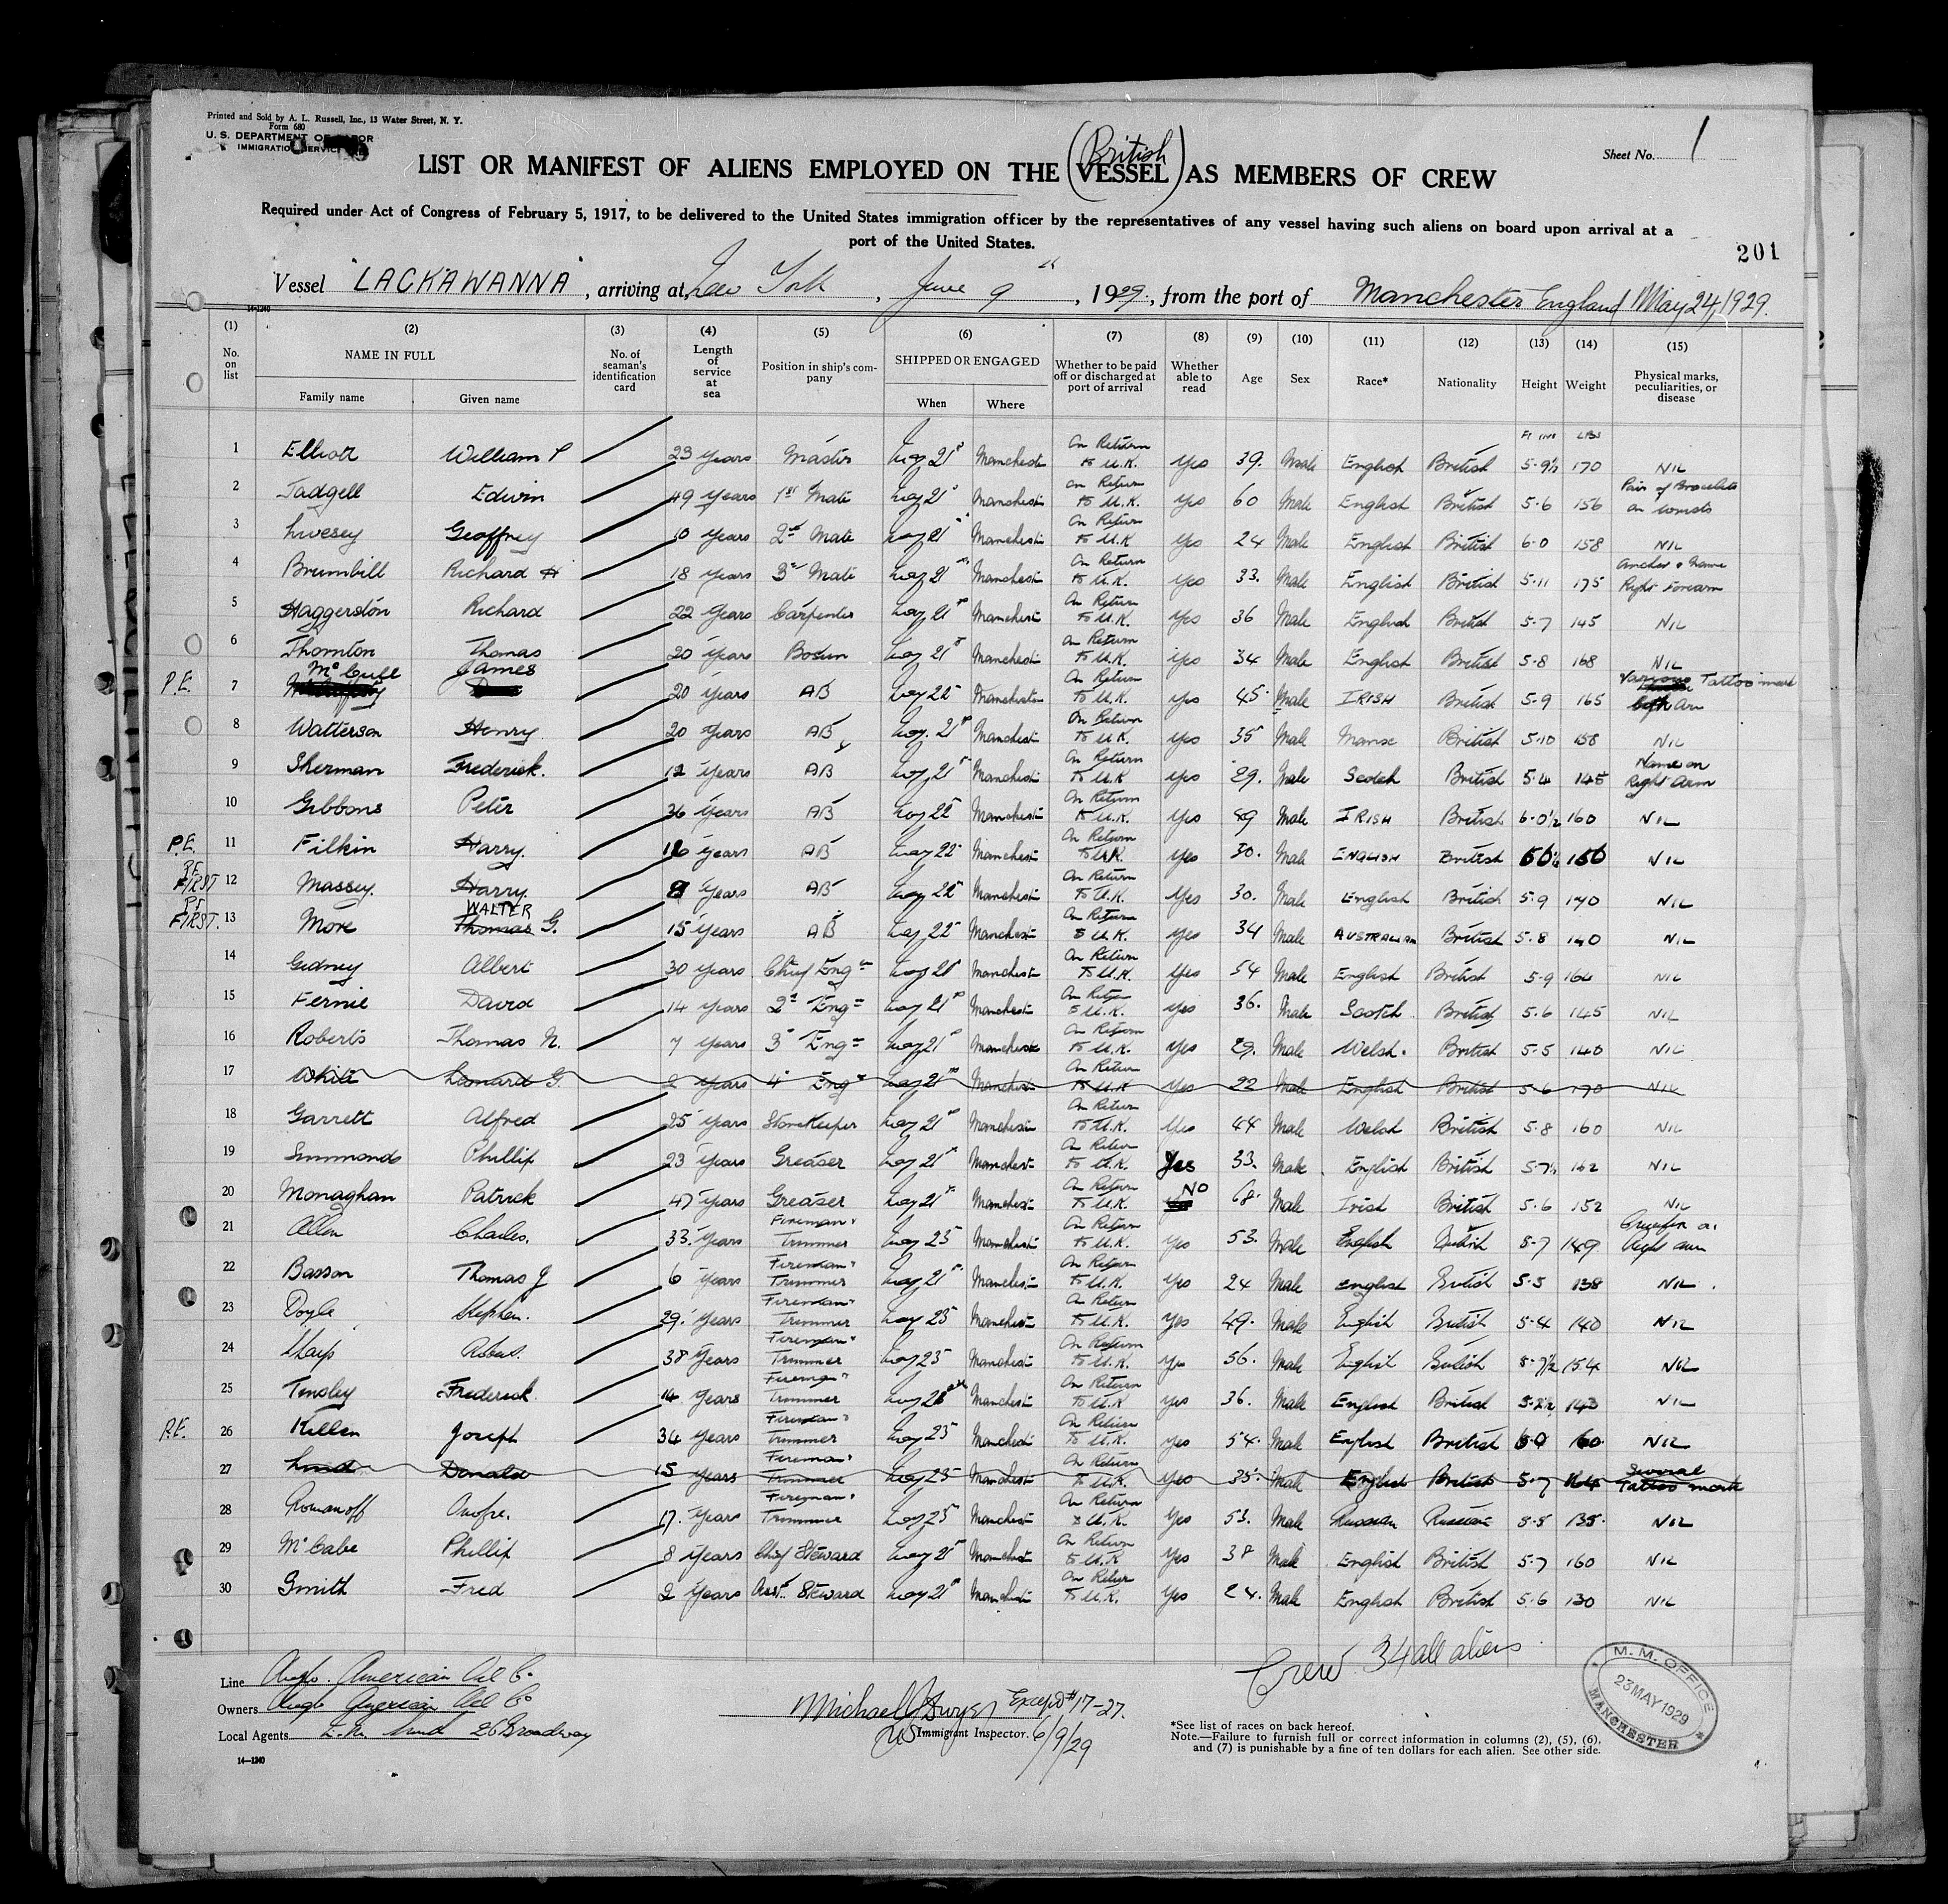 Printed and Sold by A. L. Russell, Inc., 13 Water Street, N. Y.
Form 680
U. S. DEPARTMENT OF LABOR
IMMIGRATION SERVICE
Sheet No. 1
LIST OR MANIFEST OF ALIENS EMPLOYED ON THE (British VESSEL) AS MEMBERS OF CREW
Required under Act of Congress of February 5, 1917, to be delivered to the United States immigration officer by the representatives of any vessel having such aliens on board upon arrival at a
port of the United States.
201
Vessel "LACKAWANNA", arriving at New York, June 9th, 1929, from the port of Manchester England May 24, 1929.
14-1240
(1) (2) (3) (4) (5) (6) (7) (8) (9) (10) (11) (12) (13) (14) (15)
No. on list NAME IN FULL Family name Given name No. of seaman's identification card Length of service at sea Position in ship's company SHIPPED OR ENGAGED When Where Whether to be paid off or discharged at port of arrival Whether able to read Age Sex Race* Nationality Height Weight Physical marks, peculiarities, or disease
Ft ins Lbs
1 Elliott William P 23 years Master May 21st Manchester On Return to U.K. yes 39. Male English British 5-9½ 170 NIL
2 Tadgell Edwin 49 years 1st Mate May 21st Manchester On Return to U.K. yes 60 Male English British 5-6 156 Pair of Bracelets on wrists
3 Livesey Geoffrey 10 years 2nd Mate May 21st Manchester On Return to U.K. yes 24 Male English British 6-0 158 NIL
4 Brumbill Richard H 18 years 3rd Mate May 21st Manchester On Return to U.K. yes 33. Male English British 5-11 175 Anchor & Name Right Forearm
5 Haggerston Richard 22 years Carpenter May 21st Manchester On Return to U.K. yes 36 Male English British 5-7 145 NIL
6 Thornton Thomas 20 years Bosun May 21st Manchester On Return to U.K. yes 34 Male English British 5-8 168 NIL
P.E. 7 James 20 years AB May 22 Manchester On Return to U.K. yes 45 Male IRISH British 5-9 165 Various Tattoo mark arm
8 Watterson Henry 20 years AB May 21st Manchester On Return to U.K. yes 35 Male Manx British 5-10 158 NIL
9 Sherman Frederick. 12 years AB May 21st Manchester On Return to U.K. yes 29. Male Scotch British 5-4 145 Name on Right Arm
10 Gibbons Peter 36 years AB May 22 Manchester On Return to U.K. yes 49 Male IRISH British 6-0½ 160 NIL
P.E. 11 Filkin Harry. 16 years AB May 22 Manchester On Return to U.K. yes 30. Male ENGLISH British NIL
P.E. FIRST 12 Massey. Harry 8 years AB May 22 Manchester On Return to U.K. yes 30. Male English British 5-9 140 NIL
P.E. FIRST. 13 More WALTER Thomas G. 15 years AB May 22 Manchester On Return to U.K. yes 34 Male AUSTRALIAN British 5-8 140 NIL
14 Gidney Albert 30 years Chief Engr May 21st Manchester On Return to U.K. yes 54 Male English British 5-9 164 NIL
15 Fernie David 14 years 2nd Engr May 21st Manchester On Return to U.K. yes 36. Male Scotch British 5-6 145 NIL
16 Roberts Thomas N. 7 years 3rd Engr May 21st Manchester On Return to U.K. yes 29. Male Welsh. British 5-5 140 NIL
17 White Leonard G. 2 years 4th Engr May 21st Manchester On Return to U.K yes 22 Male English British 5-6 170 NIL
18 Garrett Alfred 25 years Storekeeper May 21st Manchester On Return to U.K. yes 44 Male Welsh British 5-8 160 NIL
19 Simmonds Phillip 23 years Greaser May 21st Manchester On Return to U.K. yes 33. Male English British 5-7½ 162 NIL
20 Monaghan Patrick 47 years Greaser May 21st Manchester On Return to U.K. NO 68 Male Irish British 5-6 152 NIL
21 Allen Charles. 33 years Fireman & Trimmer May 23 Manchester On Return to U.K. yes 53. Male English British 5-7 149 Right arm
22 Basson Thomas J 6 years Fireman & Trimmer May 21st Manchester On Return to U.K. yes 24 Male English British 5-5 138 NIL
23 Doyle Stephen. 29 years Fireman & Trimmer May 23 Manchester On Return to U.K. yes 49. Male English British 5-4 140 NIL
24 Sharp 38 years Fireman & Trimmer May 23 Manchester On Return to U.K. yes 56. Male English British 5-7½ 154 NIL
25 Tinsley Frederick. 14 years Fireman & Trimmer May Manchester On Return to U.K yes 36. Male English British 143 NIL
P.E. 26 Killen Joseph 34 years Fireman & Trimmer May 23 Manchester On Return to U.K. yes 54. Male English British 160 NIL
27 Donald 15 years Fireman & Trimmer May 23 Manchester On Return to U.K. yes 35. Male English British 5-7 164 Several Tattoo mark
28 Romanoff Onofre. 17 years Fireman & Trimmer May 23 Manchester On Return to U.K. yes 53. Male Russian Russian 5-5 135 NIL
29 McCabe Phillip 8 years Chief Steward May 21st Manchester On Return to U.K yes 38 Male English British 5-7 160 NIL
30 Smith Fred 2 years Asst. Steward May 21st Manchester On Return to U.K. yes 24. Male English British 5-6 130 NIL
Crew 34 all aliens
Line Anglo. American Oil Co
Owners Anglo American Oil Co
Local Agents 26 Broadway
14-1240
Michael J Dwyer Except #17-27.
US Immigrant Inspector. 6/9/29
*See list of races on back hereof.
Note.—Failure to furnish full or correct information in columns (2), (5), (6),
and (7) is punishable by a fine of ten dollars for each alien. See other side.
M. M. OFFICE
23 MAY 1929
MANCHESTER